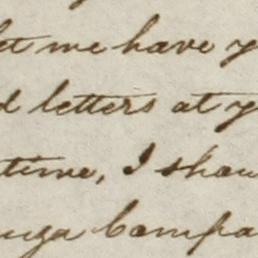 let me have y
d letters at y
time, I shou
uga Compa